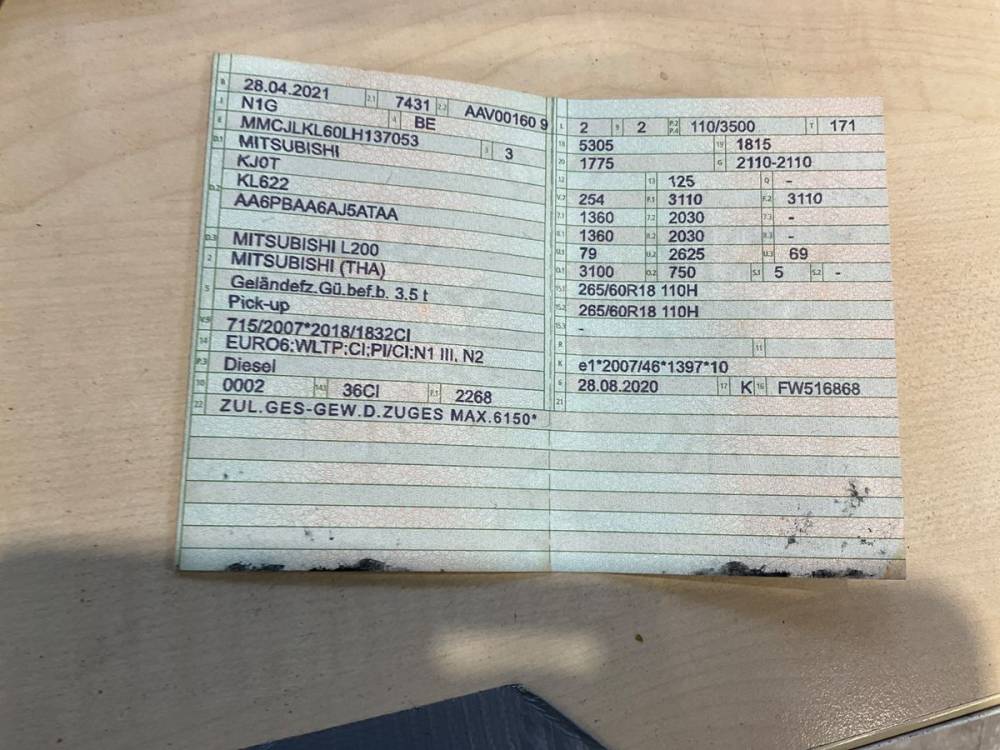 B 28.04.2021 2.1 7431 2.2 AAV00160 9
J N1G 4 BE
E MMCJLKL60LH137053 3 3
D.1 MITSUBISHI
KJ0T
D.2 KL622
AA6PBAA6AJ5ATAA
D.3 MITSUBISHI L200
2 MITSUBISHI (THA)
5 Geländefz.Gü.bef.b. 3.5 t
Pick-up
V.9 715/2007*2018/1832CI
14 EURO6;WLTP;CI;PI/CI;N1 III, N2
P.3 Diesel
10 0002 14.1 36CI P.1 2268
22 ZUL.GES-GEW.D.ZUGES MAX.6150*
L 2 9 2 P.2 P.4 110/3500 T 171
18 5305 19 1815
20 1775 G 2110-2110
12 13 125 Q -
V.7 254 F.1 3110 F.2 3110
7.1 1360 7.2 2030 7.3 -
8.1 1360 8.2 2030 8.3 -
U.1 79 U.2 2625 U.3 69
O.1 3100 O.2 750 S.1 5 S.2 -
15.1 265/60R18 110H
15.2 265/60R18 110H
15.3 -
R 11
K e1*2007/46*1397*10
6 28.08.2020 17 K 16 FW516868
21